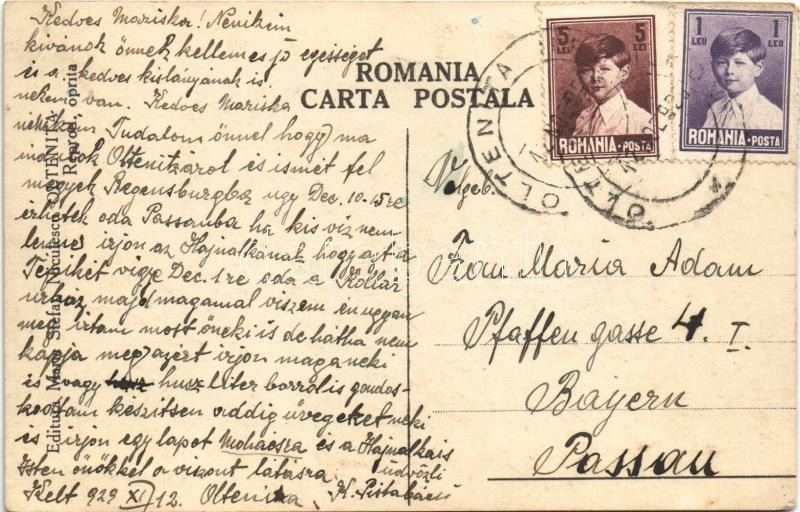 Kedves Mariska! Nevikém
kivánok önnek kellemes jo egességet
és a kedves kislányának is
nekem van. Kedves Mariska
Tudatom önnel hogy ma
indulok Oltenitzárol és ismét fel
megyek Regensburgba ugy Dec. 10-15 re
érhetek oda Passauba ha kis viz nem
lenne irjon az Hajnalkának hogy azt a
Dec. 1 re oda a Kollár
urhoz majd magamal viszem én ugyan
meg irtam most őneki is de hátha nem
kapja meg azért irjon maga neki
és vagy husz liter borrol is gondos-
kodtam készitsen addig üvegeket neki
és irjon egy lapot Mohácsra és a Hajnalkáis
Isten önökkel a viszont látásra üdvözli
Kelt 929 XI 12. Oltenitza K. Pista bácsi
ROMANIA
CARTA POSTALA
Editura Magaz. Stefan Niculescu OLTENITA
Reprod. oprita
5 LEI 5 LEI
ROMANIA·POSTA
1 LEU 1 LEU
ROMANIA·POSTA
OLTENITA
OLTENITA
Frau Maria Adam
Pfaffengasse 4. I.
Bayern
Passau